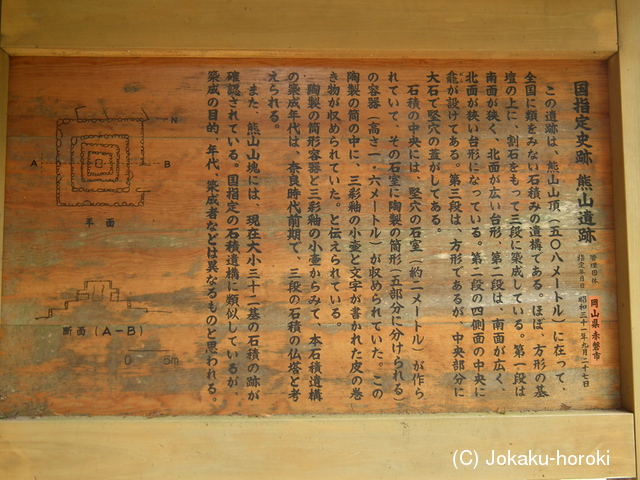 国指定史跡 熊山遺跡
管理団体 岡山県 赤磐市
指定年月日 昭和三十一年九月二十七日
この遺跡は、熊山山頂(五〇八メートル)に在って、
全国に類をみない石積みの遺構である。ほぼ、方形の基
壇の上に、割石をもって三段に築成している。第一段は
南面が狭く、北面が広い台形、第二段は、南面が広く、
北面が狭い台形になっている。第二段の四側面の中央に
龕が設けてある。第三段は、方形であるが、中央部分に
大石で竪穴の蓋がしてある。
石積の中央には、竪穴の石室(約二メートル)が作ら
れていて、その石室に陶製の筒形(五部分に分けられる)
の容器(高さ一・六メートル)が収められていた。この
陶製の筒の中に、三彩釉の小壷と文字が書かれた皮の巻
き物が収められていた。と伝えられている。
陶製の筒形容器と三彩釉の小壷からみて、本石積遺構
の築成年代は、奈良時代前期で、三段の石積の仏塔と考
えられる。
また、熊山山塊には、現在大小三十二基の石積の跡が
確認されている。国指定の石積遺構に類似しているが、
築成の目的、年代、築成者などは異なるものと思われる。
N
A
B
平面
断面(A-B)
0 5m
(C) Jokaku-horoki